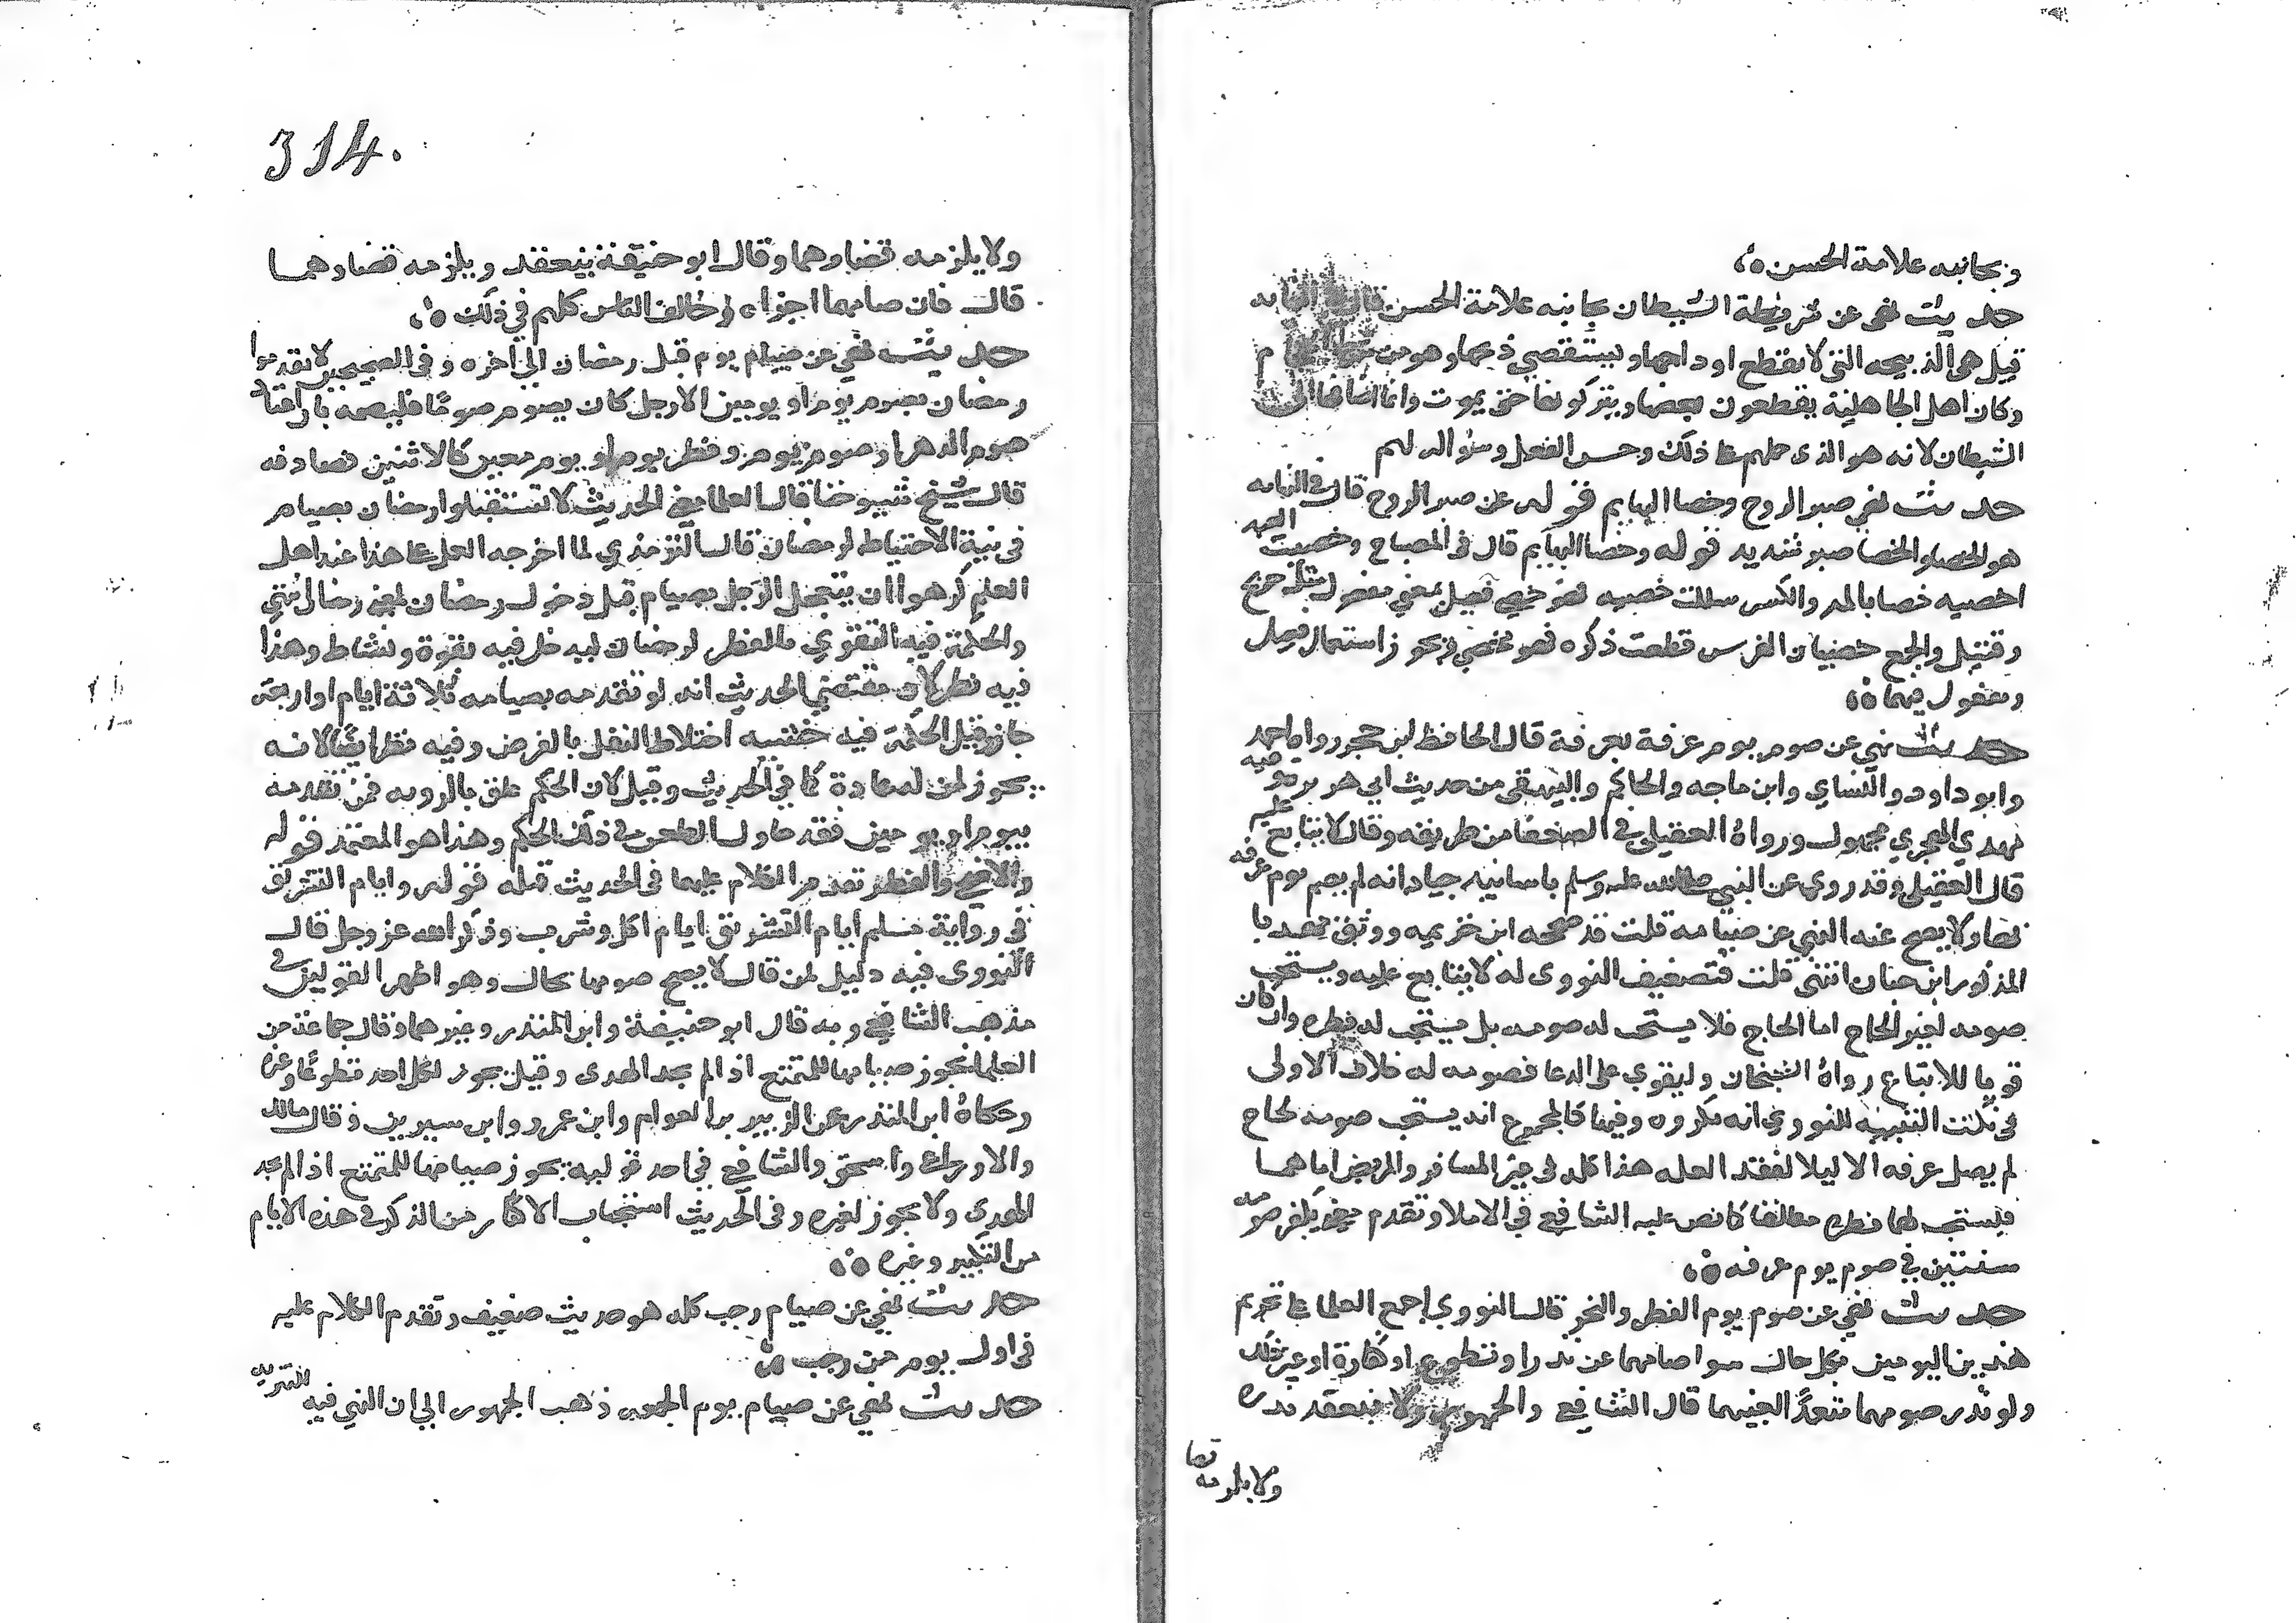 وبجانبه علامة الحسن
حديث نهى عن شريطة الشيطان بجانبه علامة الحسن قال في النهايه
قيل هي الذبيحه التي لا يقطع اوداجها ويستقصي ذبحها وهو من
وكان اهل الجاهلية يقطعون بعضها ويتركونها حتى يموت وانما اضافها الى
الشيطان لانه هو الذي حملهم على ذلك وحسن الفعل وسؤاله لهم
حديث نهى صبر الروح وخصا البهايم قوله عن صبر الروح قال في النهايه
هو الخصا والخصا صبر شديد قوله وخصا البهايم قال في المصباح وخصيت العبد
اخصيه خصا بالمد والكسر سللت خصيه فهو خصي فعيل بمعنى مفعول مثل جريح
وقتيل والجمع خصيان الفرس قطعت ذكره فهو مخصي فيجوز استعمال فعيل
ومفعول فيهما
حديث نهى عن صوم يوم عرفة بعرفة قال الحافظ ابن حجر رواه احمد
وابو داود والنساي وابن ماجه والحاكم والبيهقي من حديث ابي هريره وفيه
مهدي الهجري مجهول ورواه العقيلي في الضعفا من طريقه وقال لا يتابع عليه
قال العقيلي وقد روي عن النبي صلى الله عليه وسلم باسانيد جياد انه لم يصم يوم عرفه
بها ولا يصح عنه النهي عن صيامه قلت قد صححه ابن خزيمه ووثق مهديا
المذكور ابن حبان انتهى قلت فتضعيف النووي له لا يتابع عليه ويستحب
صومه لغير الحاج اما الحاج فلا يستحب له صومه بل يستحب له فطره وان كان
قويا للاتباع رواه الشيخان وليقوي على الدعا فصومه له خلاف الاولى
في نكت التنبيه للنووي انه مكروه وفيها كالمجموع انه يستحب صومه لحاج
لم يصل عرفه الا ليلا لفقد العله هذا كله في غير المسافر والمريض اما هما
فيستحب لهما فطره مطلقا كما نص عليه الشافعي في الاملا وتقدم معنى يكفر صومه
سنتين في صوم يوم عرفه
حديث نهى عن صوم يوم الفطر والنحر قال النووي اجمع العلما على تحريم
هذين اليومين بكل حال سوا صامهما عن نذر او تطوع او كفارة او غير ذلك
ولو نذر صومهما متعمدًا لعينهما قال الشافعي والجمهور ولا ينعقد نذره
ولا يلزمه قضا
314.
ولا يلزمه قضاوهما وقال ابو حنيفة ينعقد ويلزمه قضاوهما
قال فان صامهما اجزاه وخالف الناس كلهم في ذلك
حديث نهى عن صيام يوم قبل رمضان الى اخره وفي الصحيحين لا تقدموا
رمضان بصوم يوم او يومين الا رجل كان يصوم صومًا فليصمه بان اعتاد
صوم الدهر او صوم يوم وفطر يوم او يوم معين كالاثنين فصادفه
قال شيخ شيوخنا قال العلما معنى الحديث لا تستقبلوا رمضان بصيام
في نية الاحتياط لرمضان قال الترمذي لما اخرجه العمل على هذا عند اهل
العلم كرهوا ان يتعجل الرجل بصيام قبل دخول رمضان لمعنى رمضان انتهى
والحكمة فيه التقوي بالفطر لرمضان ليدخل فيه بقوة ونشاط وهذا
فيه نظر لان مقتضى الحديث انه لو تقدمه بصيامه ثلاثة ايام او اربعة
جاز وقيل الحكمة فيه خشيه اختلاط النفل بالفرض وفيه نظر ايضًا لانه
يجوز لمن له عادة كما في الحديث وقيل لان الحكم علق بالرويه فمن تقدمه
بيوم او يومين فقد حاول الطعن في ذلك الحكم وهذا هو المعتمد قوله
والاضحى والفطر تقدم الكلام عليهما في الحديث قبله قوله وايام التشريق
في رواية مسلم ايام التشريق ايام اكل وشرب وذكر الله عز وجل قال
النووي فيه دليل لمن قال لا يصح صومها بحال وهو اظهر القولين في
مذهب الشافعي وبه قال ابو حنيفة وابن المنذر وغيرهما وقال جماعة من
العلما يجوز صيامها للمتمتع اذا لم يجد الهدى وقيل يجوز لكل احد تطوعًا وغيره
وحكاه ابن المنذر عن الزبير بن العوام وابن عمر وابن سيرين وقال مالك
والاوزاعي واسحق والشافعي في احد قوليه يجوز صيامها للمتمتع اذا لم يجد
الهدي ولا يجوز لغيره وفي الحديث استحباب الاكثار من الذكر في هذه الايام
من التكبير وغيره
حديث نهى عن صيام رجب كله هو حديث ضعيف وتقدم الكلام عليه
في اول يوم من رجب
حديث نهى عن صيام يوم الجمعه ذهب الجمهور الى ان النهي فيه للتنزيه